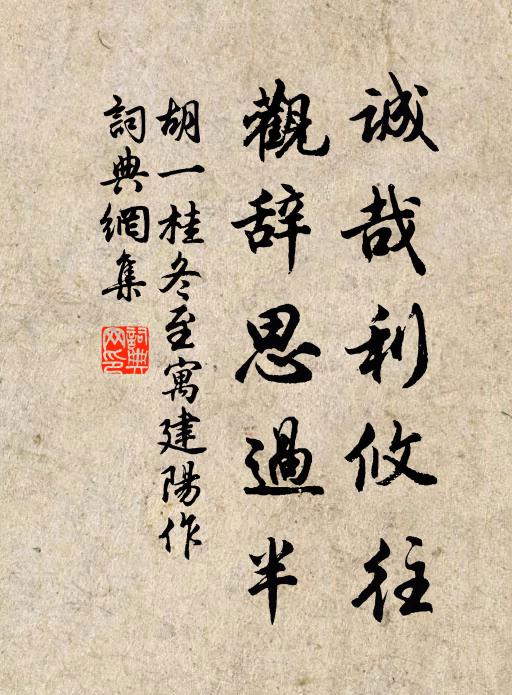 誠哉利攸往
觀辞思過半
胡一桂冬至寓建陽作
詞典網集
詞典
网印